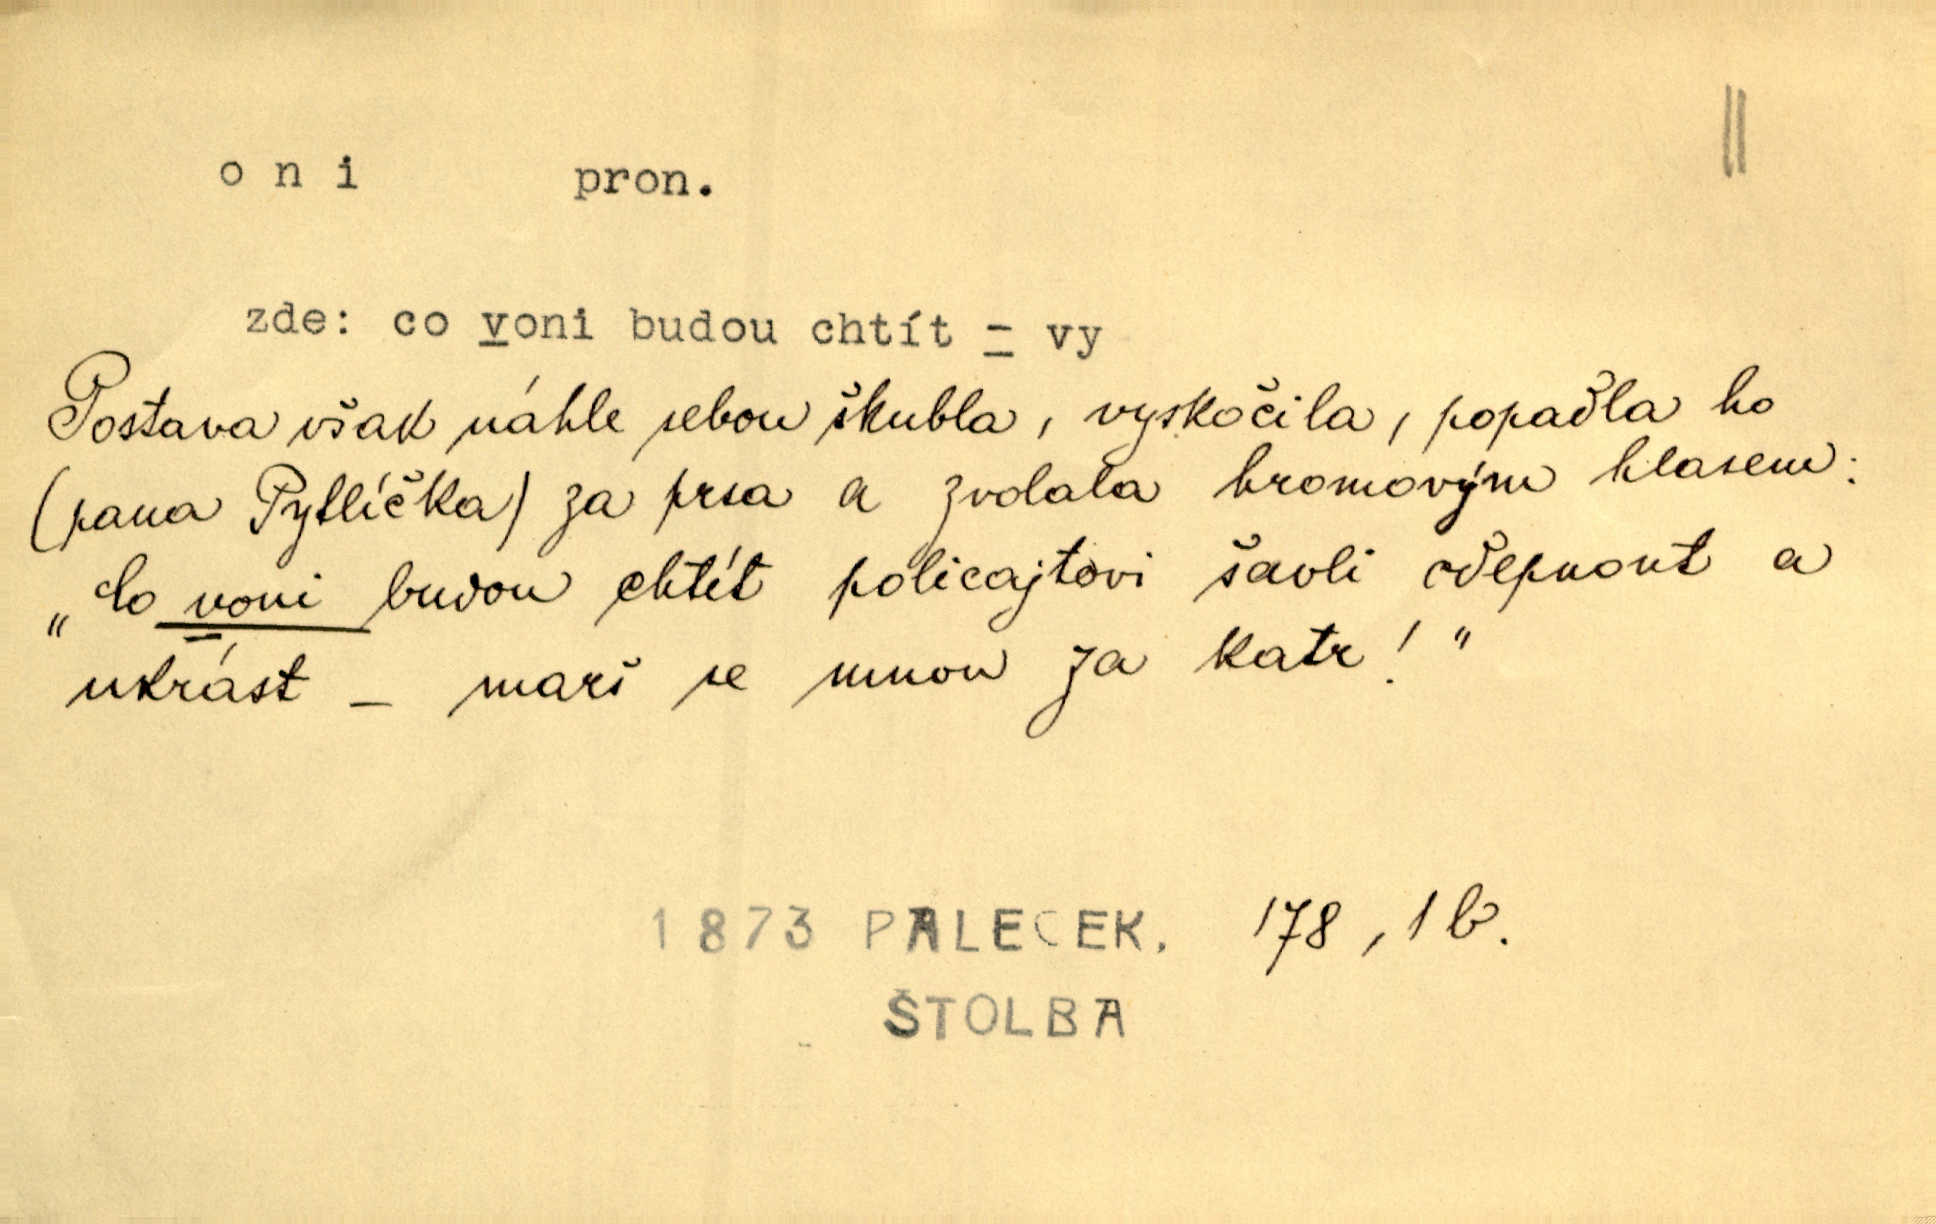 oni pron. ||
zde: co voni budou chtít = vy
Postava však náhle sebou škubla, vyskočila, popadla ho
(pana Pytlíčka) za prsa a zvolala hromovým hlasem:
„Co voni budou chtít policajtovi šavli odepnout a
ukrást – marš se mnou za katr!"
1873 PALECEK. 178, 1 b.
ŠTOLBA